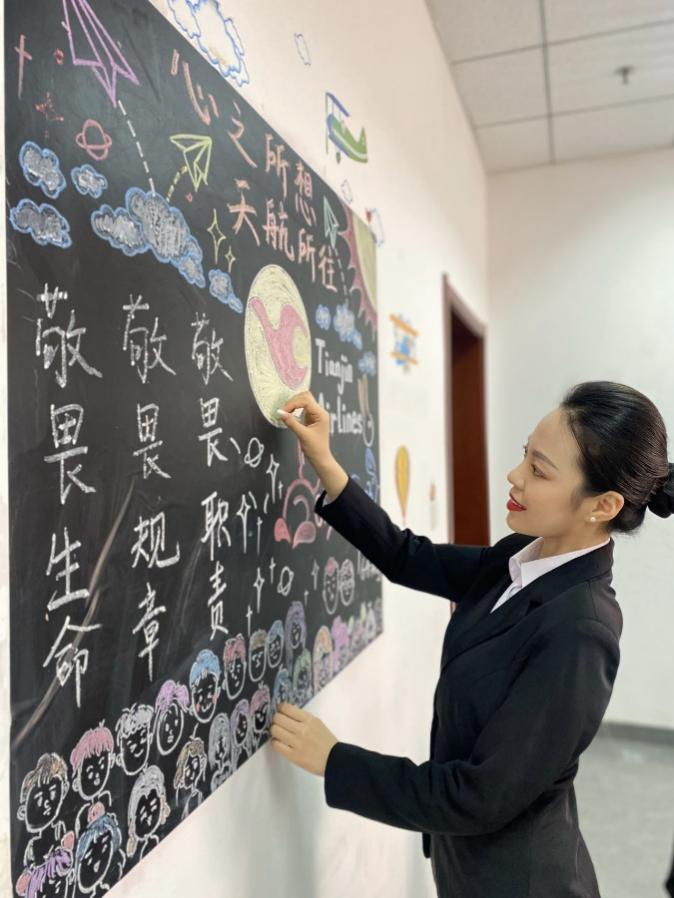 心之所想
天航所往
敬畏生命
敬畏规章
敬畏职责
Tianjin
Airlines